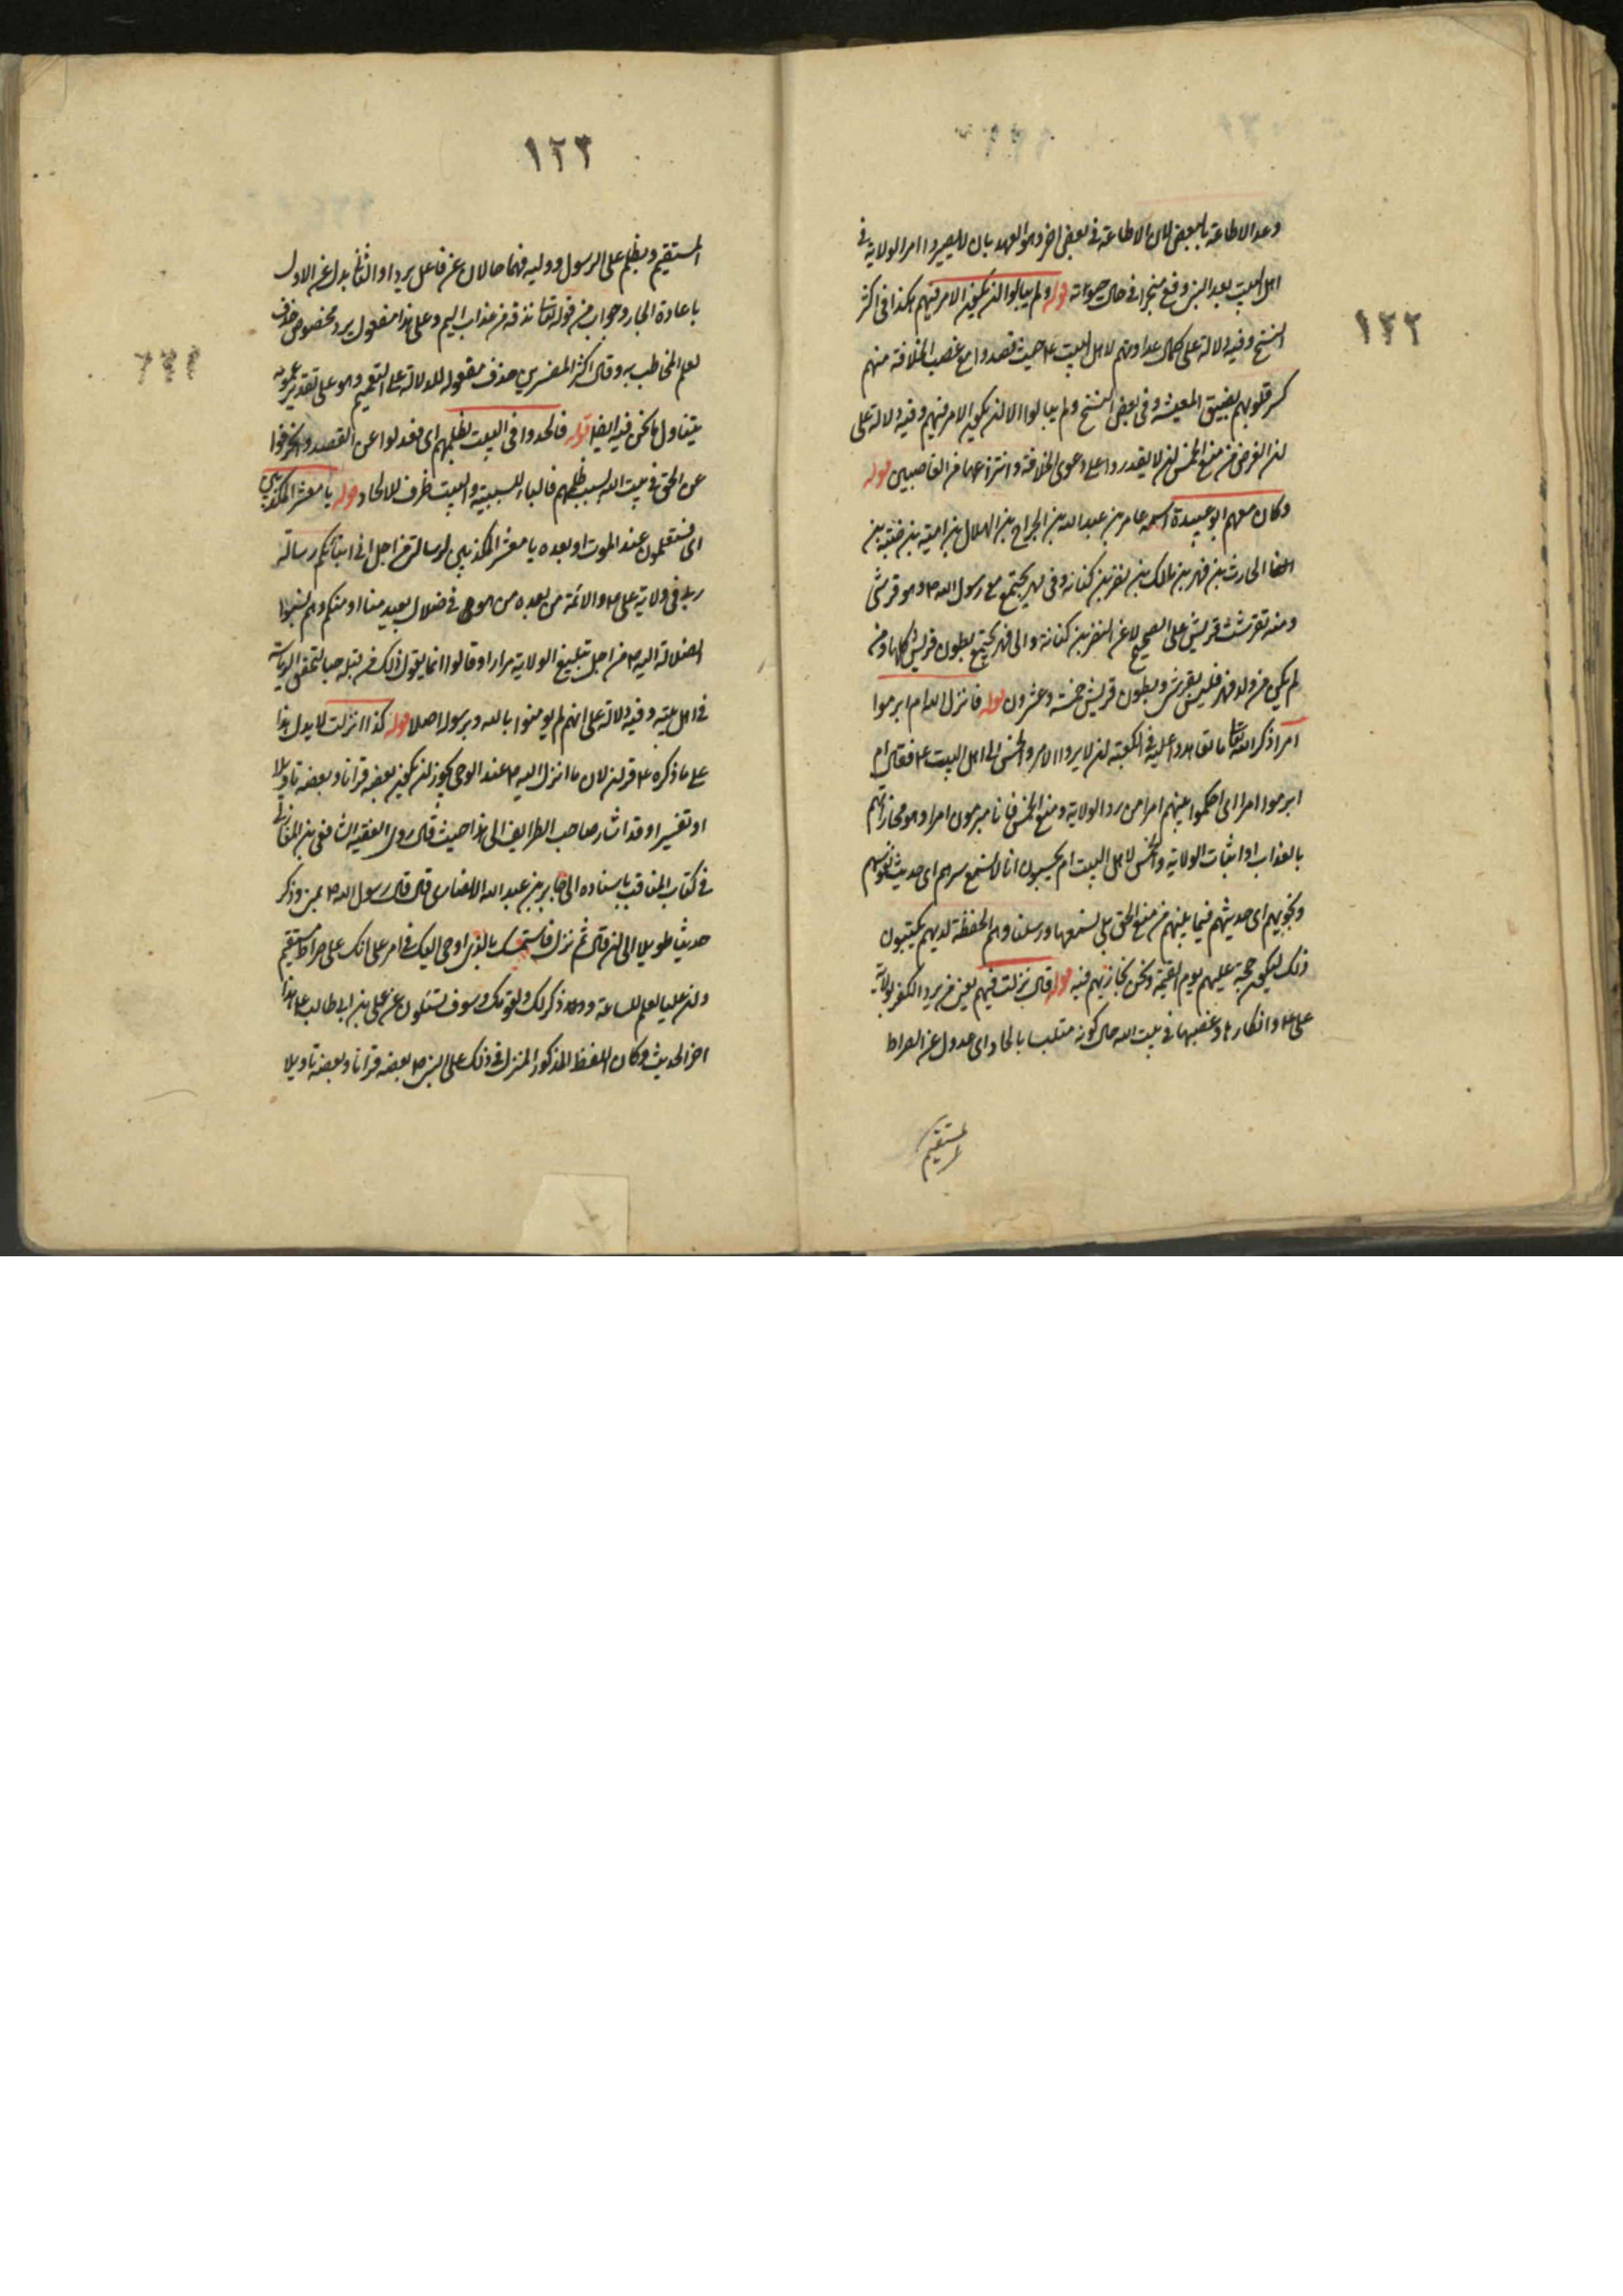 ١٢٢
وعد الاطاعة بالبعض لان الاطاعة في بعض اخر وهو العهد بان لا يصيروا امر الولاية في
اهل البيت بعد النبي وقع منجزا في حال حيوته قوله ولم يبالوا ان يكون الامر فيهم هكذا في اكثر
النسخ وفيه دلالة على كمال عداوتهم لاهل البيت ع حيث قصدوا مع غصب الخلافة منهم
كسر قلوبهم بضيق المعيشة وفي بعض النسخ ولم يبالوا الا ان يكون الامر فيهم وفيه دلالة على
ان الغرض من منع الخمس ان لا يقدروا على دعوى الخلافة وانتزاعها من الغاصبين قوله
وكان معهم ابو عبيدة اسمه عامر بن عبد الله بن الجراح بن الهلال بن امية بن ضبة بن
الحارث بن فهر بن مالك بن نضر بن كنانة وفي فهر يجتمع مع رسول الله ص وهو قرشي
ومنه تقرشت قريش على الصحيح لا عن النضر بن كنانة والى فهر يجتمع بطون قريش كلها ومن
لم يكن من ولد فهر فليس بقرشي وبطون قريش خمسة وعشرون قوله فانزل الله ام ابرموا
امرا ذكر الله تعالى ما تعاهدوا عليه في الكعبة ان لا يردوا الامر والخمس الى اهل البيت ع فقال ام
ابرموا امرا اي احكموا بينهم امرا من رد الولاية ومنع الخمس فانا مبرمون امرا وهو مجازاتهم
بالعذاب او اثبات الولاية والخمس لاهل البيت ام يحسبون انا لا نسمع سرهم اي حديث نفوسهم
ونجويهم اي حديثهم فيما بينهم من منع الحق بلى نسمعها ورسلنا وهم الحفظة لديهم يكتبون
ذلك ليكون حجة عليهم يوم القيمة ونحن نجازيهم فيه قوله قال نزلت فيهم يعني من يرد الكفر بولاية
علي ع وانكارها وغصبها في بيت الله حال كونه متلبسا بالحاد اي عدول عن الصراط
المستقيم
١٢٣
المستقيم وبظلم على الرسول ووليه فهما حالان عن فاعل يرد او الثاني بدل عن الاول
باعادة الجار وجواب من قوله تعالى نذقه من عذاب اليم وعلى هذا مفعول يرد مخصوص حذف
لعلم المخاطب به وقال اكثر المفسرين حذف مفعوله للدلالة على التعميم وهو على تقدير عمومه
يتناول ما نحن فيه ايضا قوله فالحدوا في البيت بظلمهم اي فعدلوا عن القصد وانحرفوا
عن الحق في بيت الله بسبب ظلمهم فالباء للسببية والبيت ظرف للالحاد قوله يا معشر المكذبين
اي فستعلمون عند الموت او بعده يا معشر المكذبين لرسالتي من اجل اني انبأتكم رسالة
ربي في ولاية علي ع والائمة من بعده من هو في ضلال بعيد منا او منكم وهم نسبوا
الضلالة اليه ص من اجل تبليغ الولاية مرارا وقالوا انما يقول ذلك من قبله حبا لتحقق الرياسة
في اهل بيته وفيه دلالة على انهم لم يؤمنوا بالله وبرسوله اصلا قوله كذا انزلت لا يدل هذا
على ما ذكره ع قران لان ما انزل اليه ص عند الوحي يجوز ان يكون بعضه قرانا وبعضه تاويلا
او تفسيرا وقد اشار صاحب الطرايف الى هذا حيث قال روى الفقيه الشافعي بن المغازلي
في كتاب المناقب باسناده الى جابر بن عبد الله الانصاري قال قال رسول الله ص بمنى وذكر
حديثا طويلا الى ان قال ثم نزل فاستمسك بالذي اوحي اليك في امر علي انك على صراط مستقيم
وان عليا لعلم للساعة وانه لذكر لك ولقومك وسوف تسئلون عن علي بن ابي طالب ع هذا
اخر الحديث وكان اللفظ المذكور المنزل في ذلك على النبي ص بعضه قرانا وبعضه تاويلا